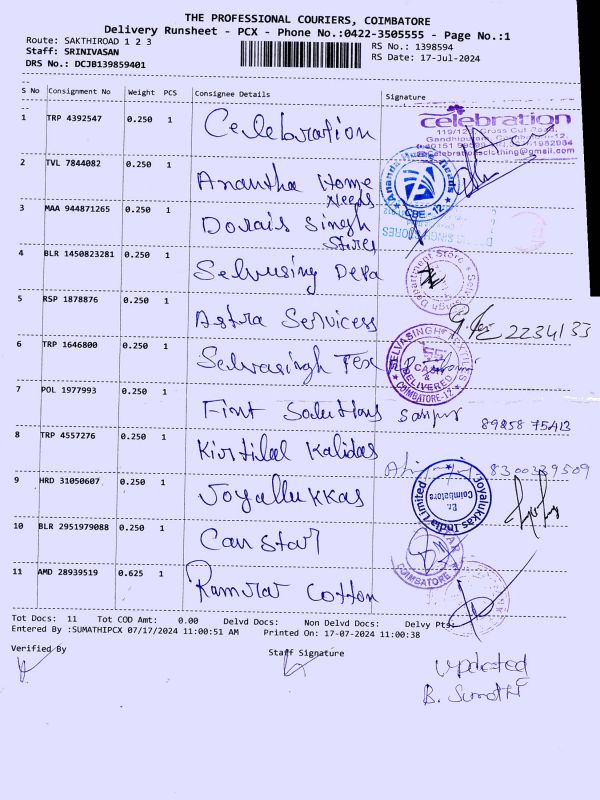 THE PROFESSIONAL COURIERS, COIMBATORE
Delivery Runsheet - PCX - Phone No.:0422-3505555 - Page No.:1
Route: SAKTHIROAD 1 2 3
RS No.: 1398594
Staff: SRINIVASAN
RS Date: 17-Jul-2024
DRS No.: DCJB139859401
S No Consignment No Weight PCS Consignee Details Signature
1 TRP 4392547 0.250 1 Celebration
celebration
119/12, Cross Cut Road,
2 TVL 7844082 0.250 1 Anantha Home
Needs
CBE - 12
3 MAA 944871265 0.250 1 Dorais Singh
Stores
4 BLR 1450823281 0.250 1 Selvasing Depa
Department Store
5 RSP 1878876 0.250 1 Astra Servicess 2234133
6 TRP 1646800 0.250 1 Selvasingh Tex
CASH
&
DELIVERED
COIMBATORE-12
7 POL 1977993 0.250 1 Fint Solutions 89258 75413
8 TRP 4557276 0.250 1 Kirtilal Kalidas 8300339509
9 HRD 31050607 0.250 1 Joyallukkas
Joyalukkas India Limited
Br.
Coimbatore
10 BLR 2951979088 0.250 1 Canstar
COIMBATORE
11 AMD 28939519 0.625 1 Ramraj Cotton
Tot Docs: 11 Tot COD Amt: 0.00 Delvd Docs: Non Delvd Docs: Delvy Pts:
Entered By :SUMATHIPCX 07/17/2024 11:00:51 AM Printed On: 17-07-2024 11:00:38
Verified By Staff Signature
updated
B. Sumathi